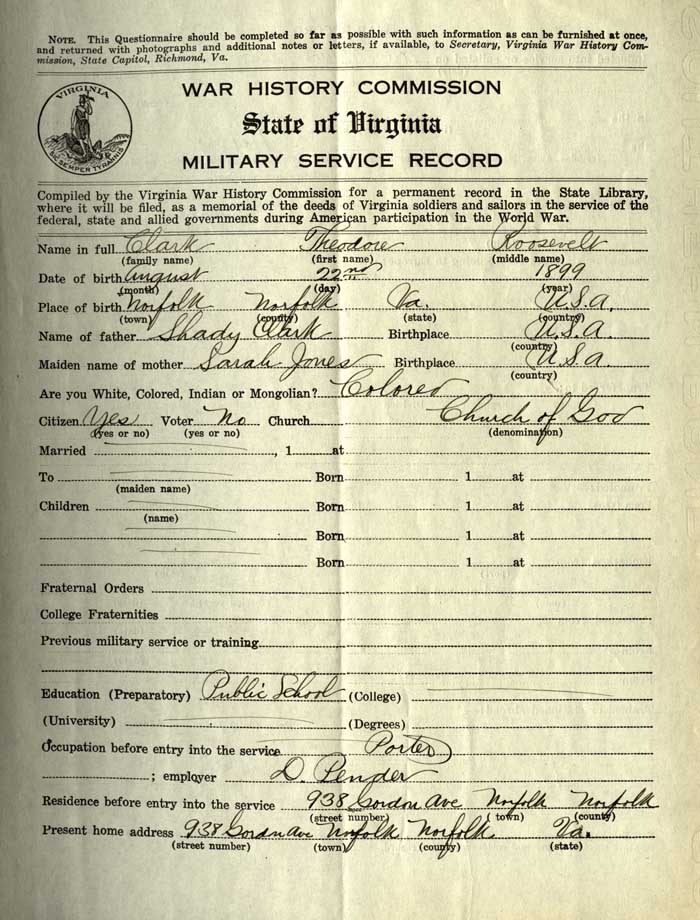 NOTE. This Questionnaire should be completed so far as possible with such information as can be furnished at once,
and returned with photographs and additional notes or letters, if available, to Secretary, Virginia War History Com-
mission, State Capitol, Richmond, Va.
WAR HISTORY COMMISSION
VIRGINIA
State of Virginia
SIC SEMPER TYRANNIS
MILITARY SERVICE RECORD
Compiled by the Virginia War History Commission for a permanent record in the State Library,
where it will be filed, as a memorial of the deeds of Virginia soldiers and sailors in the service of the
federal, state and allied governments during American participation in the World War.
Name in full Clark Theodore Roosevelt
(family name) (first name) (middle name)
Date of birth August 22nd 1899
(month) (day) (year)
Place of birth Norfolk Norfolk Va. U.S.A.
(town) (county) (state) (country)
Name of father Shady Clark Birthplace U.S.A.
(country)
Maiden name of mother Sarah Jones Birthplace U.S.A.
(country)
Are you White, Colored, Indian or Mongolian? Colored
Citizen Yes Voter No Church Church of God
(yes or no) (yes or no) (denomination)
Married , 1 at
To Born 1 at
(maiden name)
Children Born 1 at
(name)
Born 1 at
Born 1 at
Fraternal Orders
College Fraternities
Previous military service or training
Education (Preparatory) Public School (College)
(University) (Degrees)
Occupation before entry into the service Porter
; employer D. Pender
Residence before entry into the service 938 Gordon Ave Norfolk Norfolk
(street number) (town) (county)
Present home address 938 Gordon Ave Norfolk Norfolk Va.
(street number) (town) (county) (state)